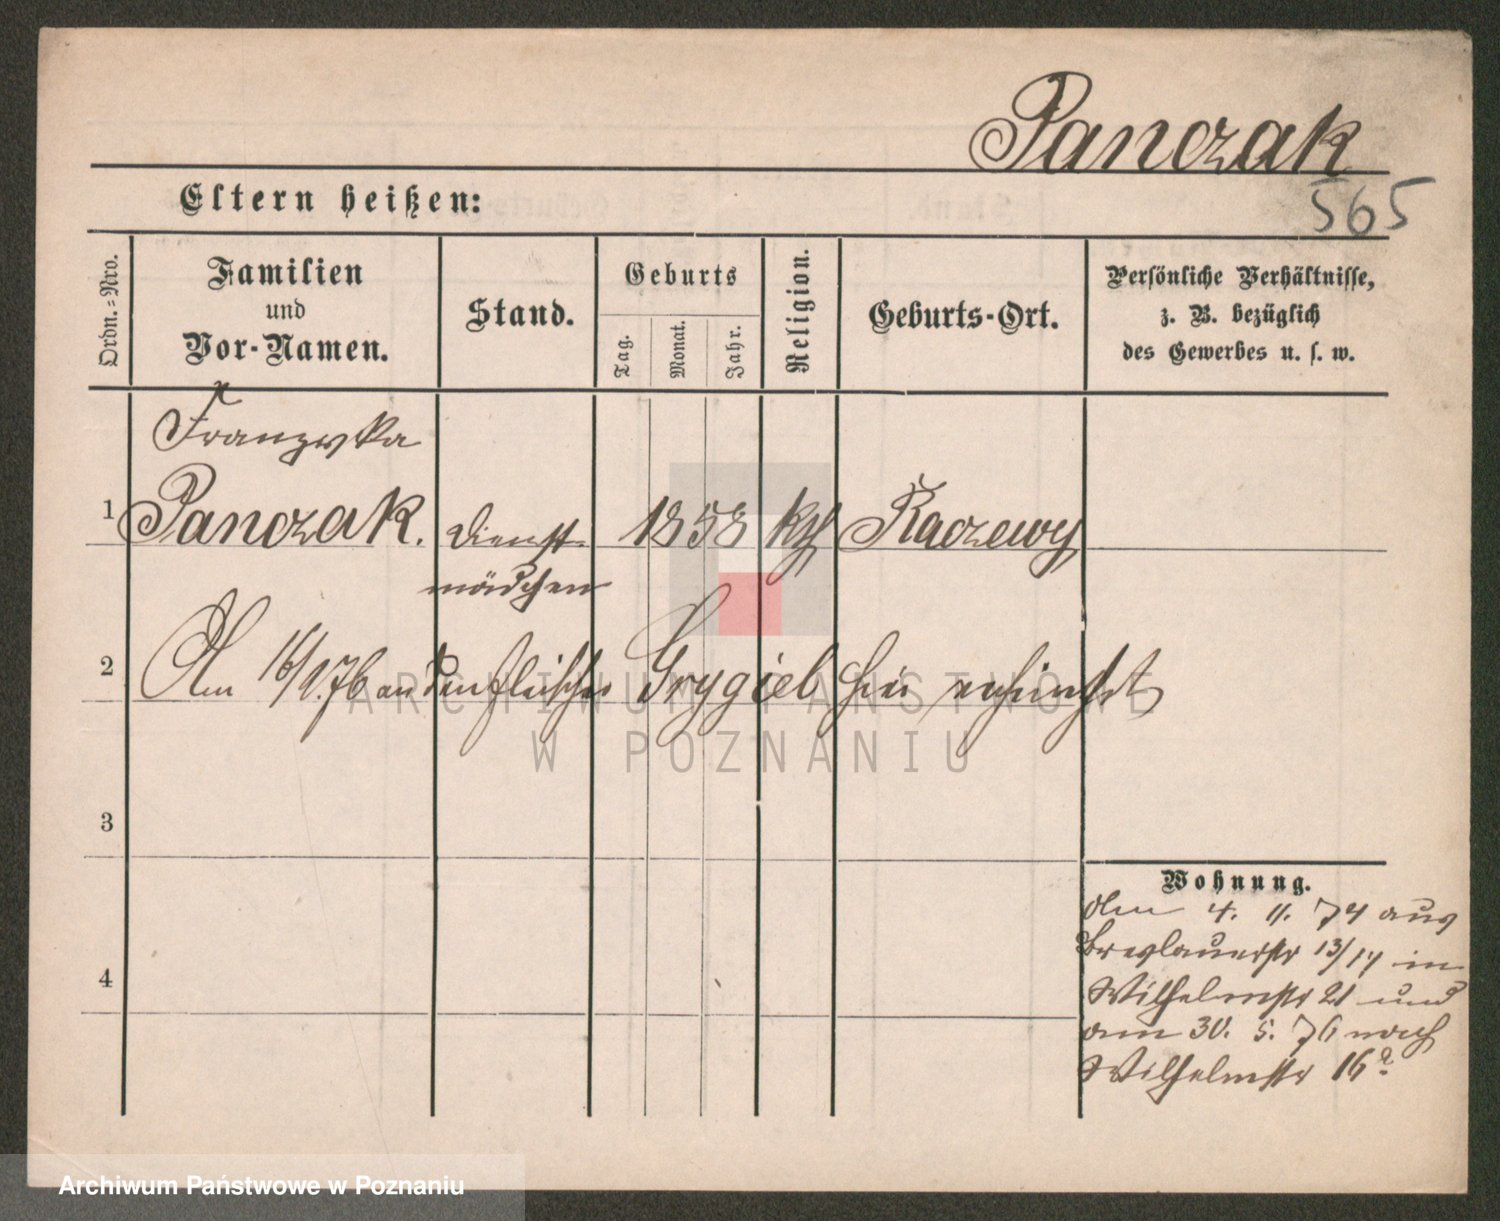 Panczak
565
Eltern heißen:
Ordn.=Nro.
Familien
und
Vor-Namen.
Stand.
Geburts
Tag.
Monat.
Jahr.
Religion.
Geburts-Ort.
Persönliche Verhältnisse,
z. B. bezüglich
des Gewerbes u. s. w.
Franziska
1 Panczak. Dienst- 1858 kth Raczewy
mädchen
2 Am 16/1.76 an den Fleischer Grygiel hier
3
4
Wohnung.
Am 4. 11. 74 aus
Breslauerstr 13/14 in
Wilhelmstr 21 und
am 30. 5. 76 nach
Wilhelmstr 16
ARCHIWUM PAŃSTWOWE
W POZNANIU
Archiwum Państwowe w Poznaniu